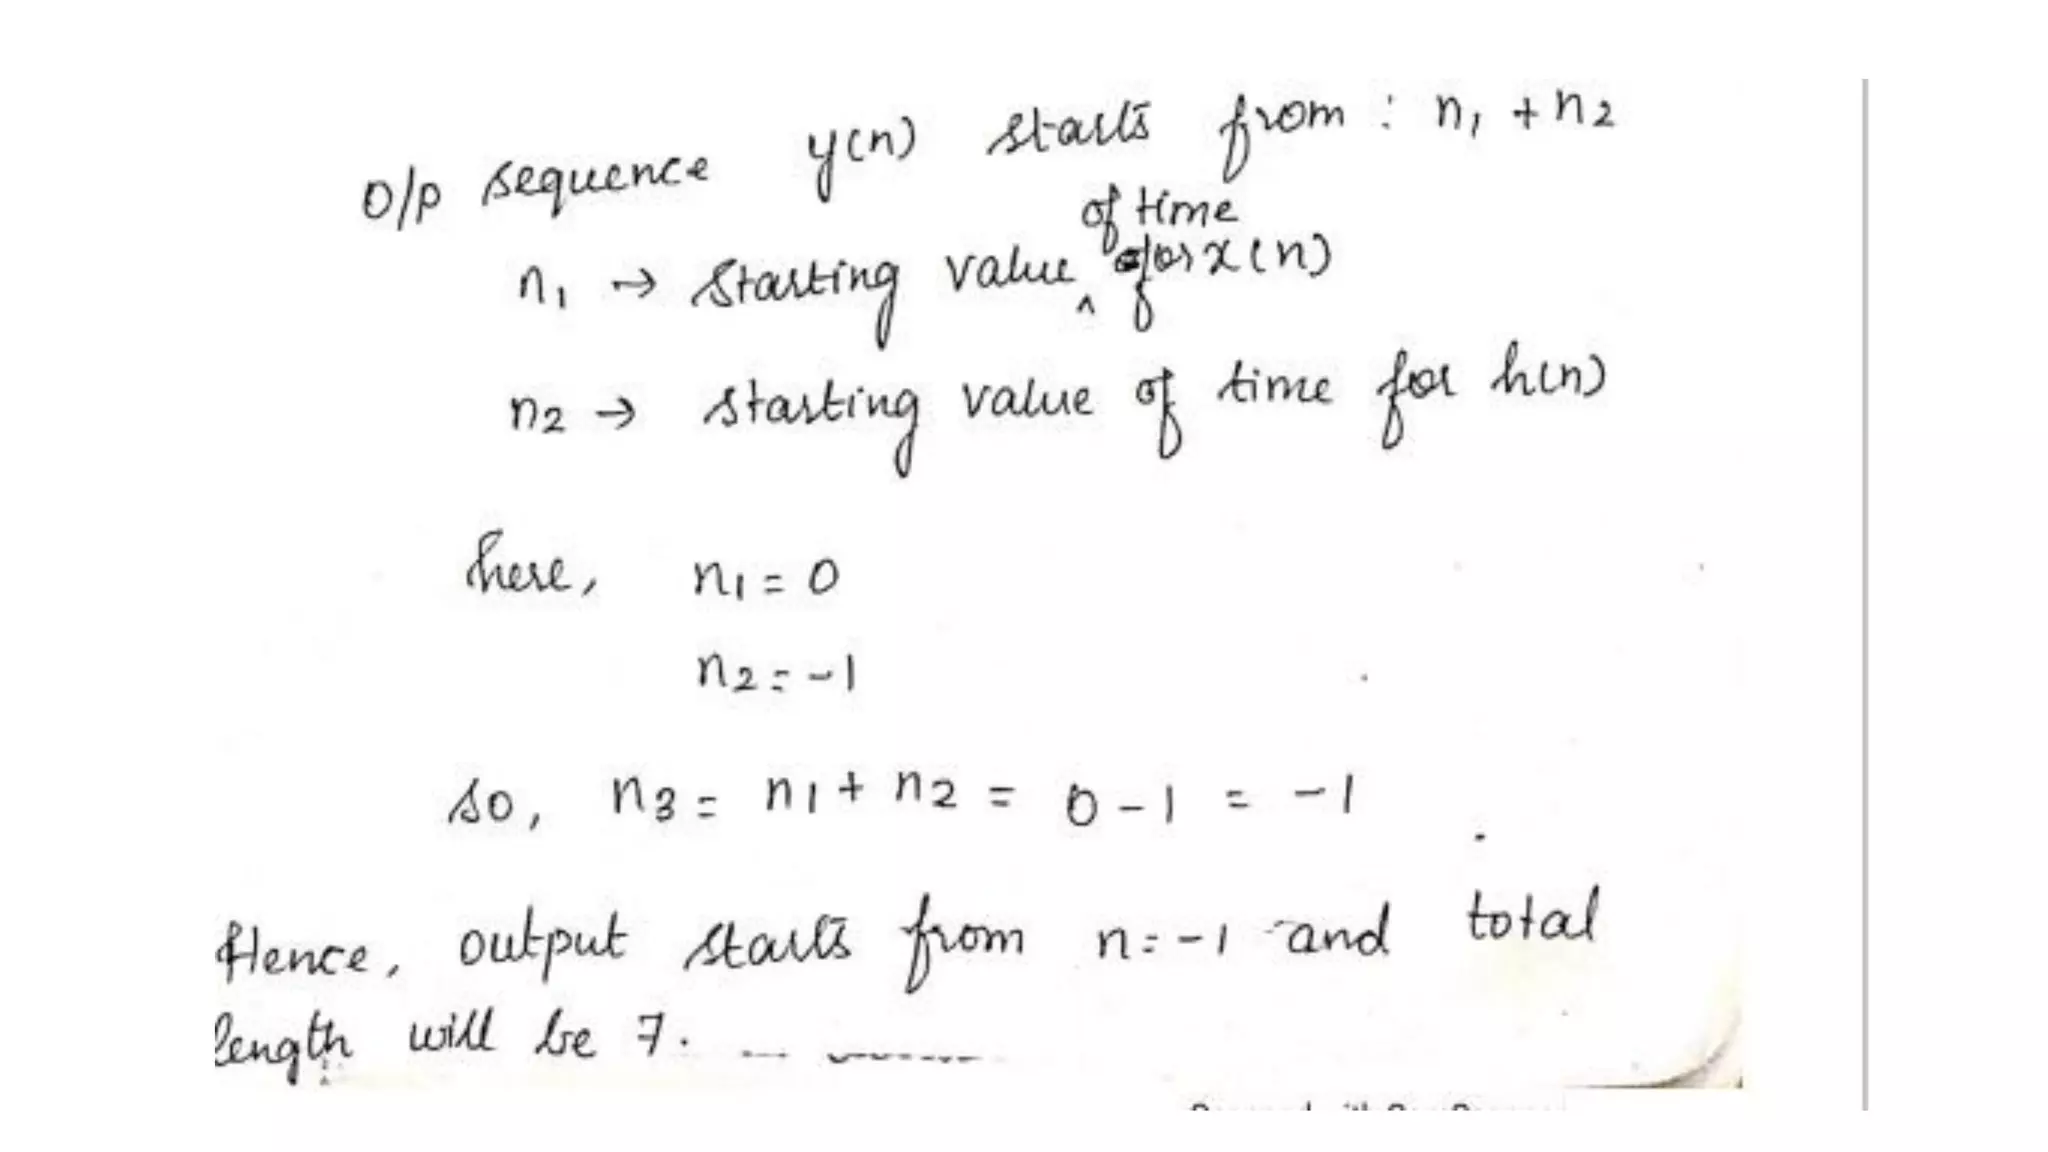 O/P sequence y(n) starts from : n1 + n2
of time
n1 → starting value ^ for x(n)
n2 → starting value of time for h(n)
here, n1 = 0
n2 = -1
so, n3 = n1 + n2 = 0 - 1 = -1
Hence, output starts from n = -1 and total
length will be 7.